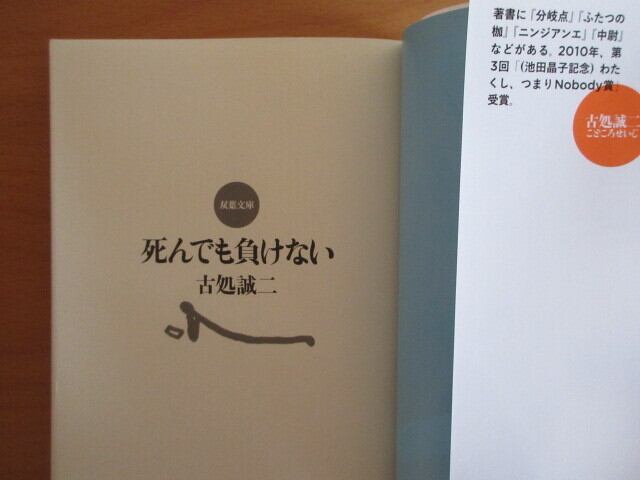 双葉文庫
死んでも負けない
古処誠二
著書に「分岐点」「ふたつの
枷」「ニンジアンエ」「中尉」
などがある。2010年、第
3回「(池田晶子記念) わた
くし、つまりNobody賞」
受賞。
古処誠二
こどころせいじ